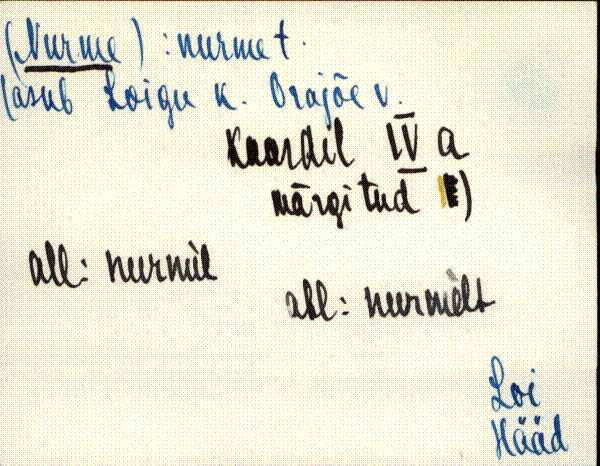 (Nurme) : nurmet.
Asub Loigu k. Orajõe v.
Kaardil IV a
märgitud )
all: nurmèl
abl: nurmèlt
Loi
Hääd